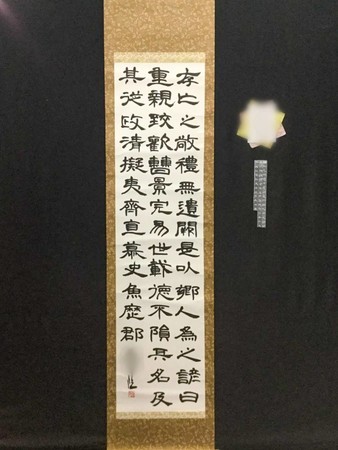 存亡之敬禮無遺闕是以鄉人為之諺曰
重親致歡曹景完易世載德不隕其名及
其從政清擬夷齊直慕史魚歷郡